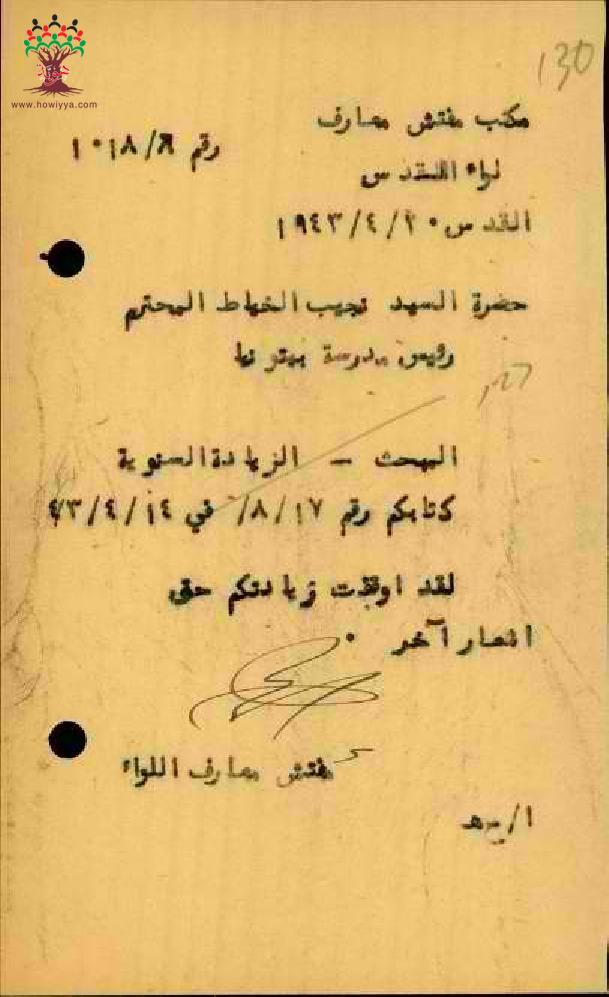 www.howiyya.com
130
مكتب مفتش معارف
رقم
لواء القدس
القدس ٢٠/٤/١٩٤٣
حضرة السيد نجيب الخياط المحترم
رئيس مدرسة بيتونيا
البحث - الزيادة السنوية
كتابكم رقم ٨/١٧/ في ٤٣/٤/١٤
لقد اوقفت زيادتكم حتى
اشعار آخر ٠
مفتش معارف اللواء